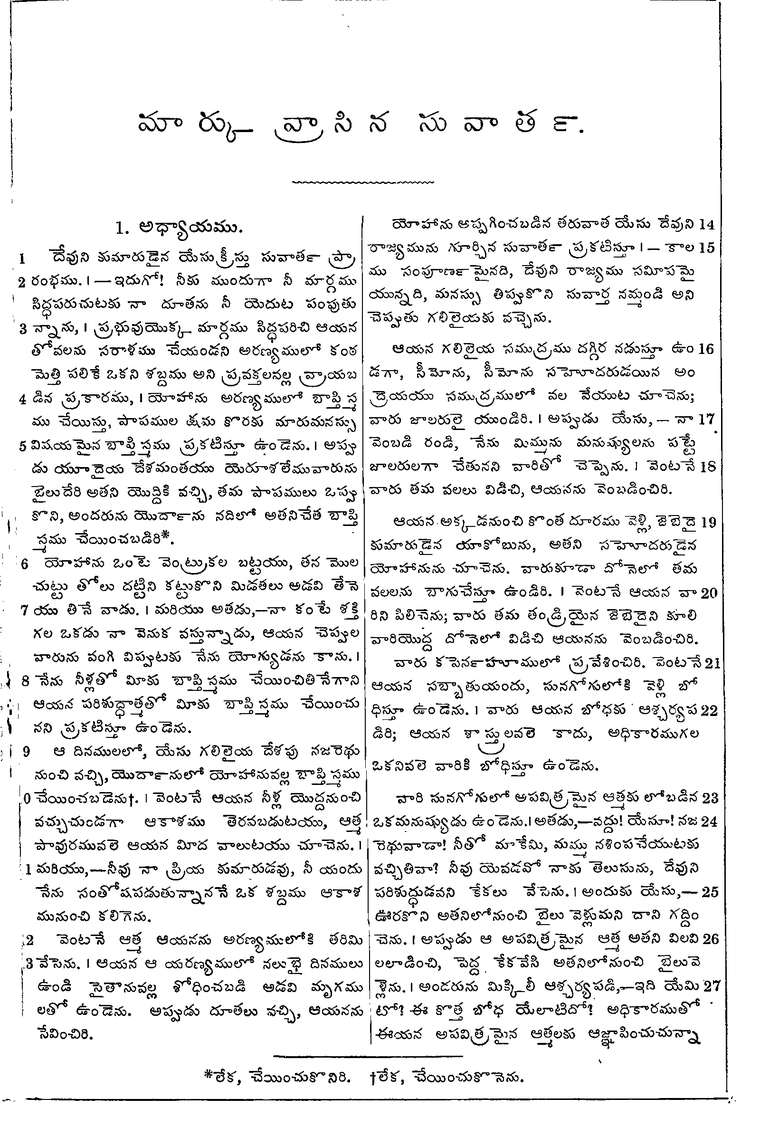 మార్కు వ్రాసిన సువాత౯.
1. అధ్యాయము.
1 దేవుని కుమారుడైన యేసుక్రీస్తు సువాత౯ ప్రా
2 రంభము. । — ఇదుగో! నీకు ముందుగా నీ మార్గము
సిద్ధపరుచుటకు నా దూతను నీ యెదుట పంపుతు
3 న్నాను, । ప్రభువుయొక్క మార్గము సిద్ధపరిచి ఆయన
తోవలను సరాళము చేయండని అరణ్యములో కంఠ
మెత్తి పలికే ఒకని శబ్దము అని ప్రవక్తలనల్ల వ్రాయబ
4 డిన ప్రకారము, । యోహాను అరణ్యములో బాప్తిస్మ
ము చేయిస్తు, పాపముల క్షమ కొరకు మారుమనస్సు
5 విషయమైన బాప్తిస్మము ప్రకటిస్తూ ఉండెను. । అప్పు
డు యూదైయ దేశమంతయు యెరూశలేమువారును
బైలుదేరి అతని యొద్దికి వచ్చి, తమ పాపములు ఒప్పు
కొని, అందరును యొదా౯ను నదిలో అతనిచేత బాప్తి
స్మము చేయించబడిరి*.
6 యోహాను ఒంటె వెంట్రుకల బట్టయు, తన మొల
చుట్టు తోలు దట్టిని కట్టుకొని మిడతలు అడవి తేనె
7 యు తినే వాడు. । మరియు అతడు,—నా కంటే శక్తి
గల ఒకడు నా వెనుక వస్తున్నాడు, ఆయన చెప్పుల
వారును వంగి విప్పుటకు నేను యోగ్యుడను కాను. ।
8 నేను నీళ్లతో మీకు బాప్తిస్మము చేయించితినేగాని
ఆయన పరిశుద్ధాత్మతో మీకు బాప్తిస్మము చేయించు
నని ప్రకటిస్తూ ఉండెను.
9 ఆ దినములలో, యేసు గలిలైయ దేశపు నజరెథు
నుంచి వచ్చి, యొదా౯నులో యోహానువల్ల బాప్తిస్మము
0 చేయించబడెను†. । వెంటనే ఆయన నీళ్ల యొద్దనుంచి
వచ్చుచుండగా ఆకాశము తెరవబడుటయు, ఆత్మ
పావురమువలె ఆయన మీద వాలుటయు చూచెను. ।
1 మరియు,—నీవు నా ప్రియ కుమారుడవు, నీ యందు
నేను సంతోషపడుతున్నాననే ఒక శబ్దము ఆకాశ
మునుంచి కలిగెను.
2 వెంటనే ఆత్మ ఆయనను అరణ్యములోకి తరిమి
3 వేసెను. । ఆయన ఆ యరణ్యములో నలుభై దినములు
ఉండి సైతానువల్ల శోధించబడి అడవి మృగము
లతో ఉండెను. అప్పుడు దూతలు వచ్చి, ఆయనను
సేవించిరి.
యోహాను అప్పగించబడిన తరువాత యేసు దేవుని 14
రాజ్యమును గూర్చిన సువాత౯ ప్రకటిస్తూ । — కాల 15
ము సంపూణ౯మైనది, దేవుని రాజ్యము సమీపమై
యున్నది, మనస్సు తిప్పుకొని సువార్త నమ్మండి అని
చెప్పుతు గలిలైయకు వచ్చెను.
ఆయన గలిలైయ సముద్రము దగ్గిర నడుస్తూ ఉం 16
డగా, సీమోను, సీమోను సహోదరుడయిన అం
ద్రెయయు సముద్రములో వల వేయుట చూచెను;
వారు జాలరులై యుండిరి. । అప్పుడు యేసు, — నా 17
వెంబడి రండి, నేను మిమ్మును మనుష్యులను పట్టే
జాలరులగా చేతునని వారితో చెప్పెను. । వెంటనే 18
వారు తమ వలలు విడిచి, ఆయనను వెంబడించిరి.
ఆయన అక్కడనుంచి కొంత దూరము వెళ్లి, జెబెదై 19
కుమారుడైన యాకోబును, అతని సహోదరుడైన
యోహానును చూచెను. వారుకూడా దోనెలో తమ
వలలను బాగుచేస్తూ ఉండిరి. । వెంటనే ఆయన వా 20
రిని పిలిచెను; వారు తమ తండ్రియైన జెబెదైని కూలి
వారియొద్ద దోనెలో విడిచి ఆయనను వెంబడించిరి.
వారు కపెన౯హూములో ప్రవేశించిరి. వెంటనే 21
ఆయన సబ్బాతుయందు, సునగోగులోకి వెళ్లి బో
ధిస్తూ ఉండెను. । వారు ఆయన బోధకు ఆశ్చర్యప 22
డిరి; ఆయన శాస్త్రులవలె కాదు, అధికారముగల
ఒకనివలె వారికి బోధిస్తూ ఉండెను.
వారి సునగోగులో అపవిత్రమైన ఆత్మకు లోబడిన 23
ఒకమనుష్యుడు ఉండెను. । అతడు,—వద్దు! యేసూ! నజ 24
రెథువాడా! నీతో మాకేమి, మమ్ము నశింపచేయుటకు
వచ్చితివా? నీవు యెవడవో నాకు తెలుసును, దేవుని
పరిశుద్ధుడవని కేకలు వేసెను. । అందుకు యేసు,— 25
ఊరకొని అతనిలోనుంచి బైలు వెళ్లుమని దాని గద్దిం
చెను. । అప్పుడు ఆ అపవిత్రమైన ఆత్మ అతని విలవి 26
లలాడించి, పెద్ద కేకవేసి అతనిలోనుంచి బైలువె
ళ్లెను. । అందరును మిక్కిలీ ఆశ్చర్యపడి,—ఇది యేమి 27
టో? ఈ కొత్త బోధ యేలాటిదో? అధికారముతో
ఈయన అపవిత్రమైన ఆత్మలకు ఆజ్ఞాపించుచున్నా
*లేక, చేయించుకొనిరి. †లేక, చేయించుకొనెను.